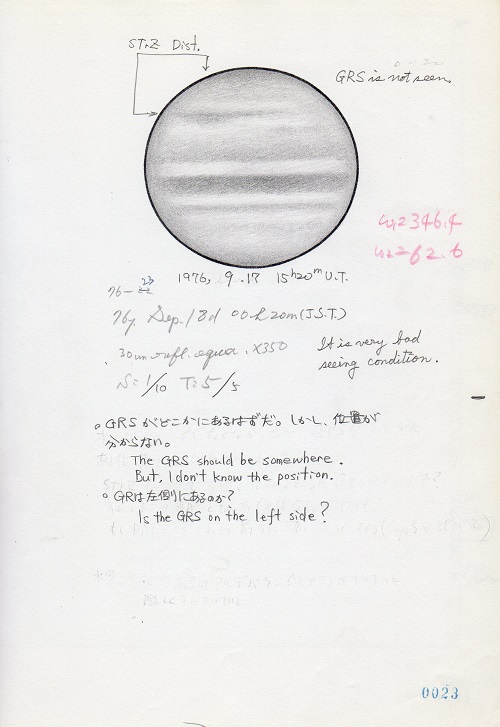 STrZ Dist.
GRS is not seen.
ω1=346.4
ω2=62.6
1976, 9.17 15h20m U.T.
76-23
76y Sep./18d 00h 20m (J.S.T.)
30cm refl. equa. ×350
It is very bad
seeing condition.
S=1/10 T=5/5
○ GRSがどこかにあるはずだ。しかし、位置が
分からない。
The GRS should be somewhere.
But, I don't know the position.
○ GRは左側にあるのか?
Is the GRS on the left side?
0023